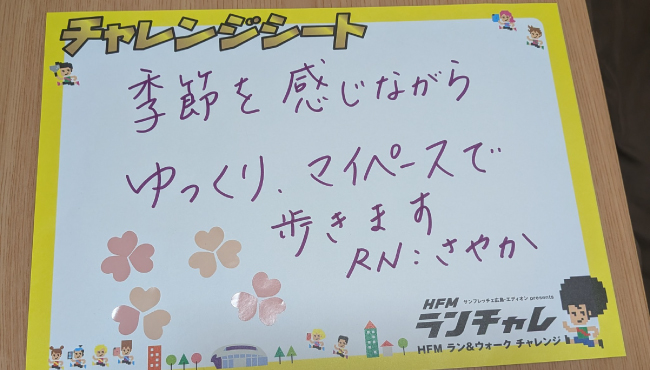 チャレンジシート
季節を感じながら
ゆっくり、マイペースで
歩きます
RN:さやか
サンフレッチェ広島・エディオン presents
HFM
ランチャレ
HFM ラン&ウォーク チャレンジ